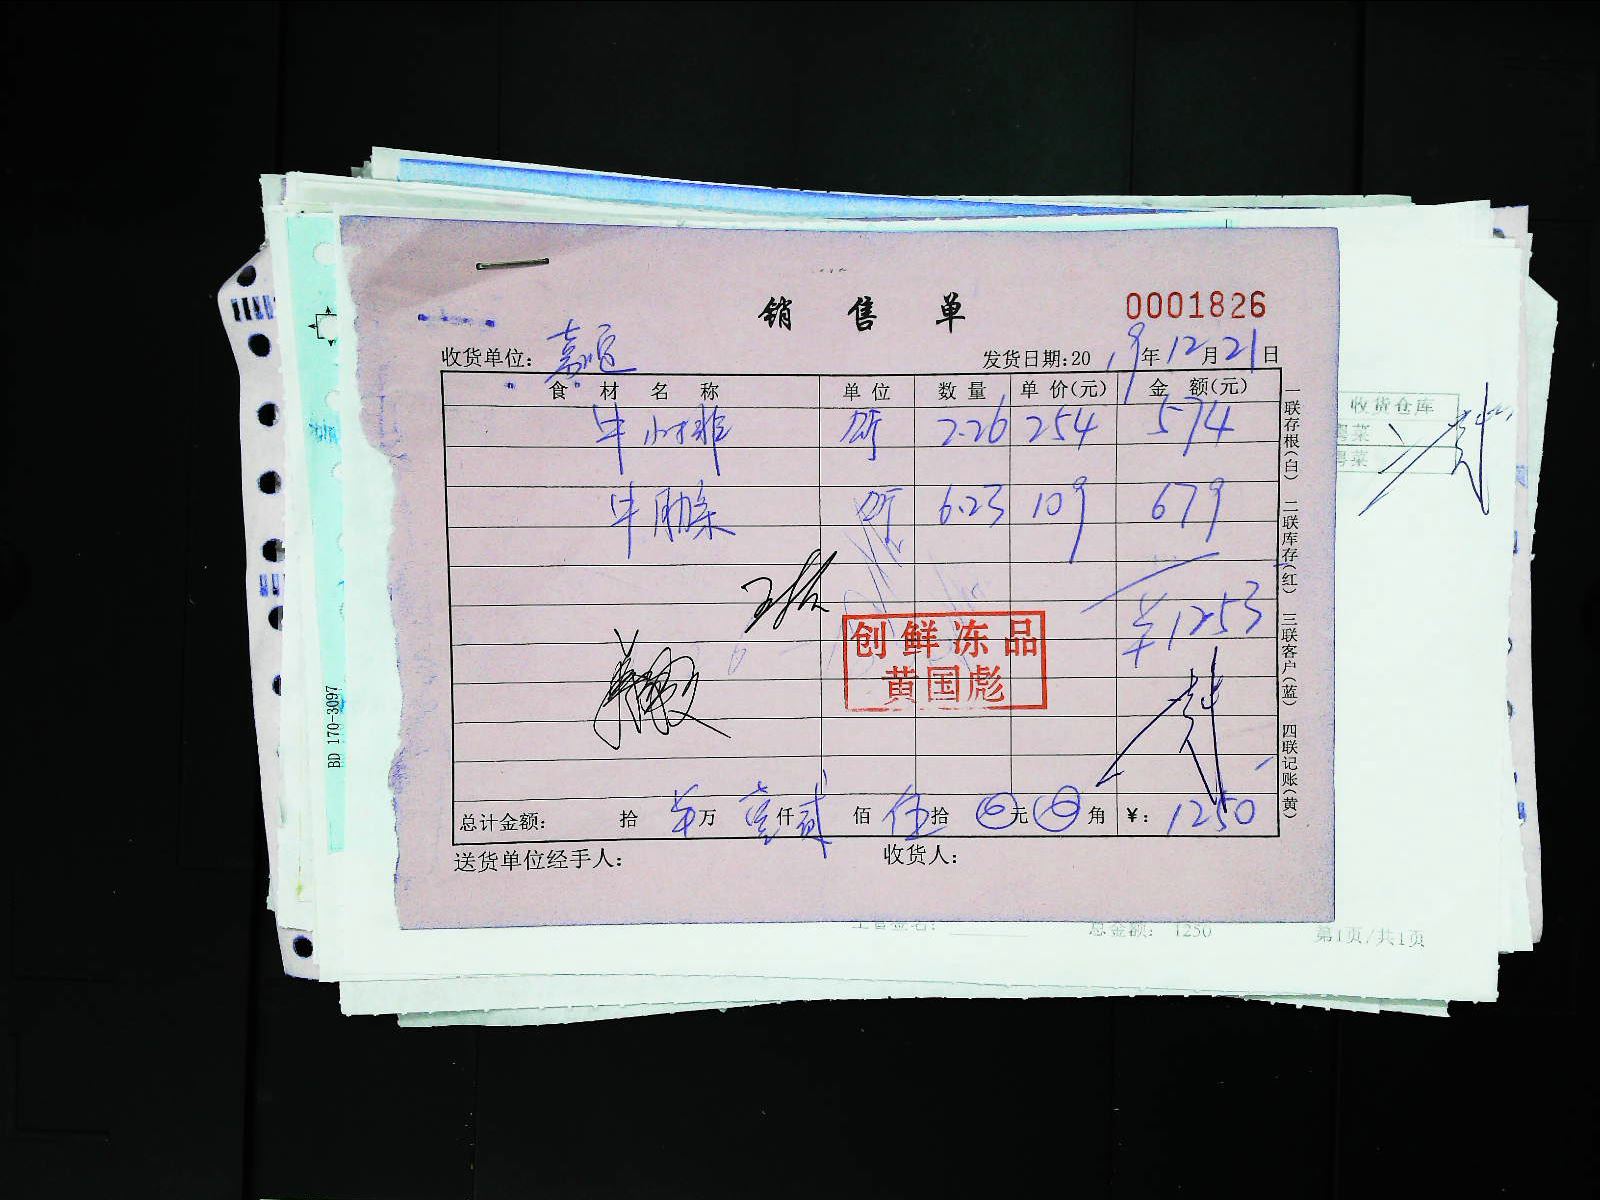 销 售 单
0001826
收货单位: 嘉
发货日期:2019年12月21日
食 材 名 称 单 位 数 量 单 价(元) 金 额(元)
牛 斤 2.26 254 574
牛肋条 斤 6.23 109 679
￥1253
创鲜冻品
黄国彪
总计金额: 拾 万 壹仟贰佰伍拾 元 角 ￥: 1250
送货单位经手人: 收货人:
一联存根(白) 二联库存(红) 三联客户(蓝) 四联记账(黄)
BD 170-3097
收货仓库
粤菜
粤菜
总金额: 1250
第1页/共1页